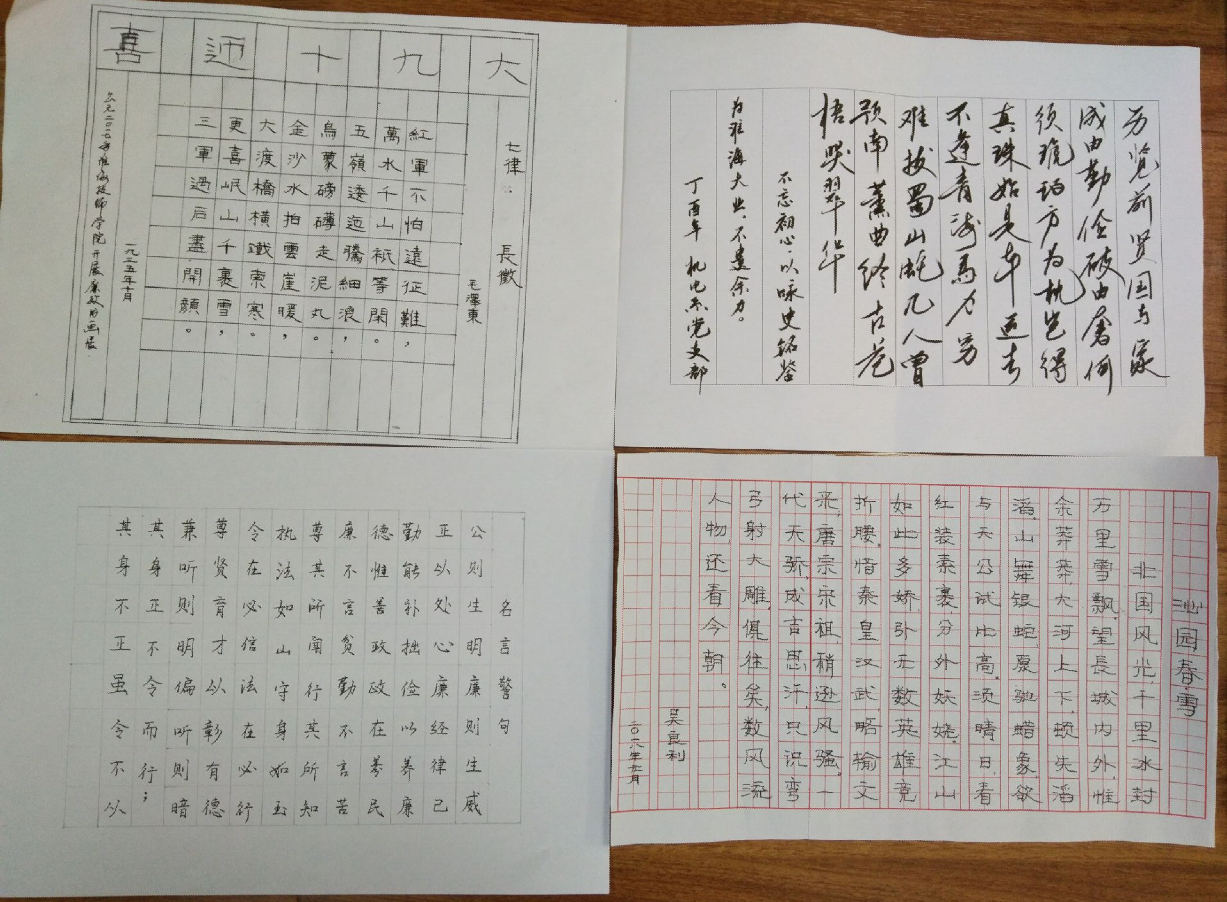 喜迎十九大
七律:長徵
毛澤東
紅軍不怕遠征難,
萬水千山祇等閑。
五嶺逶迤騰細浪,
烏蒙磅礴走泥丸。
金沙水拍雲崖暖,
大渡橋橫鐵索寒。
更喜岷山千裏雪,
三軍過后盡開顏。
一九三五年十月
公元二〇一七年淮海技师学院开展廉政书画展
历览前贤国与家
成由勤俭破由奢何
须琥珀方为枕岂得
真珠始是车 运去
不逢青海马力穷
难拔蜀山蛇几人曾
预南薰曲终古苍
梧哭翠华
不忘初心、以咏史铭鉴
为淮海大业、不遗余力。
丁酉年 机电系党支部
名言警句
公则生明廉则生威
正以处心廉经律己
勤能补拙俭以养廉
德惟善政政在养民
廉不言贫勤不言苦
尊其所闻行其所知
执法如山守身如玉
令在必信法在必行
尊贤育才以彰有德
兼听则明偏听则暗
其身正不令而行;
其身不正虽令不从
沁园春·雪
北国风光,千里冰封
万里雪飘,望長城内外,惟
余莽莽,大河上下,顿失滔
滔,山舞银蛇,原驰蜡象,欲
与天公试比高。须晴日,看
红装素裹,分外妖娆。江山
如此多娇,引无数英雄竞
折腰,惜秦皇汉武,略输文
采,唐宗宋祖,稍逊风骚。一
代天骄,成吉思汗,只识弯
弓射大雕。俱往矣,数风流
人物,还看今朝。
吴良利